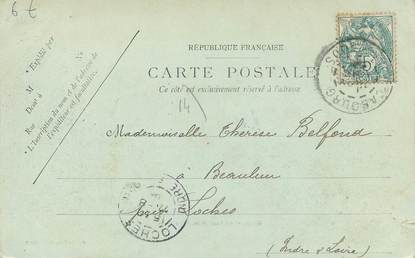 6 €
RÉPUBLIQUE FRANÇAISE
CARTE POSTALE
Ce côté est exclusivement réservé à l'adresse.
Expédié par
M
Demt à
Rue
No
L'Inscription du nom et de l'adresse de
l'expéditeur est facultative.
14
Mademoiselle Thérèse Belfond
à Beaulieu
près Loches
(Indre & Loire)
LOCHES
INDRE